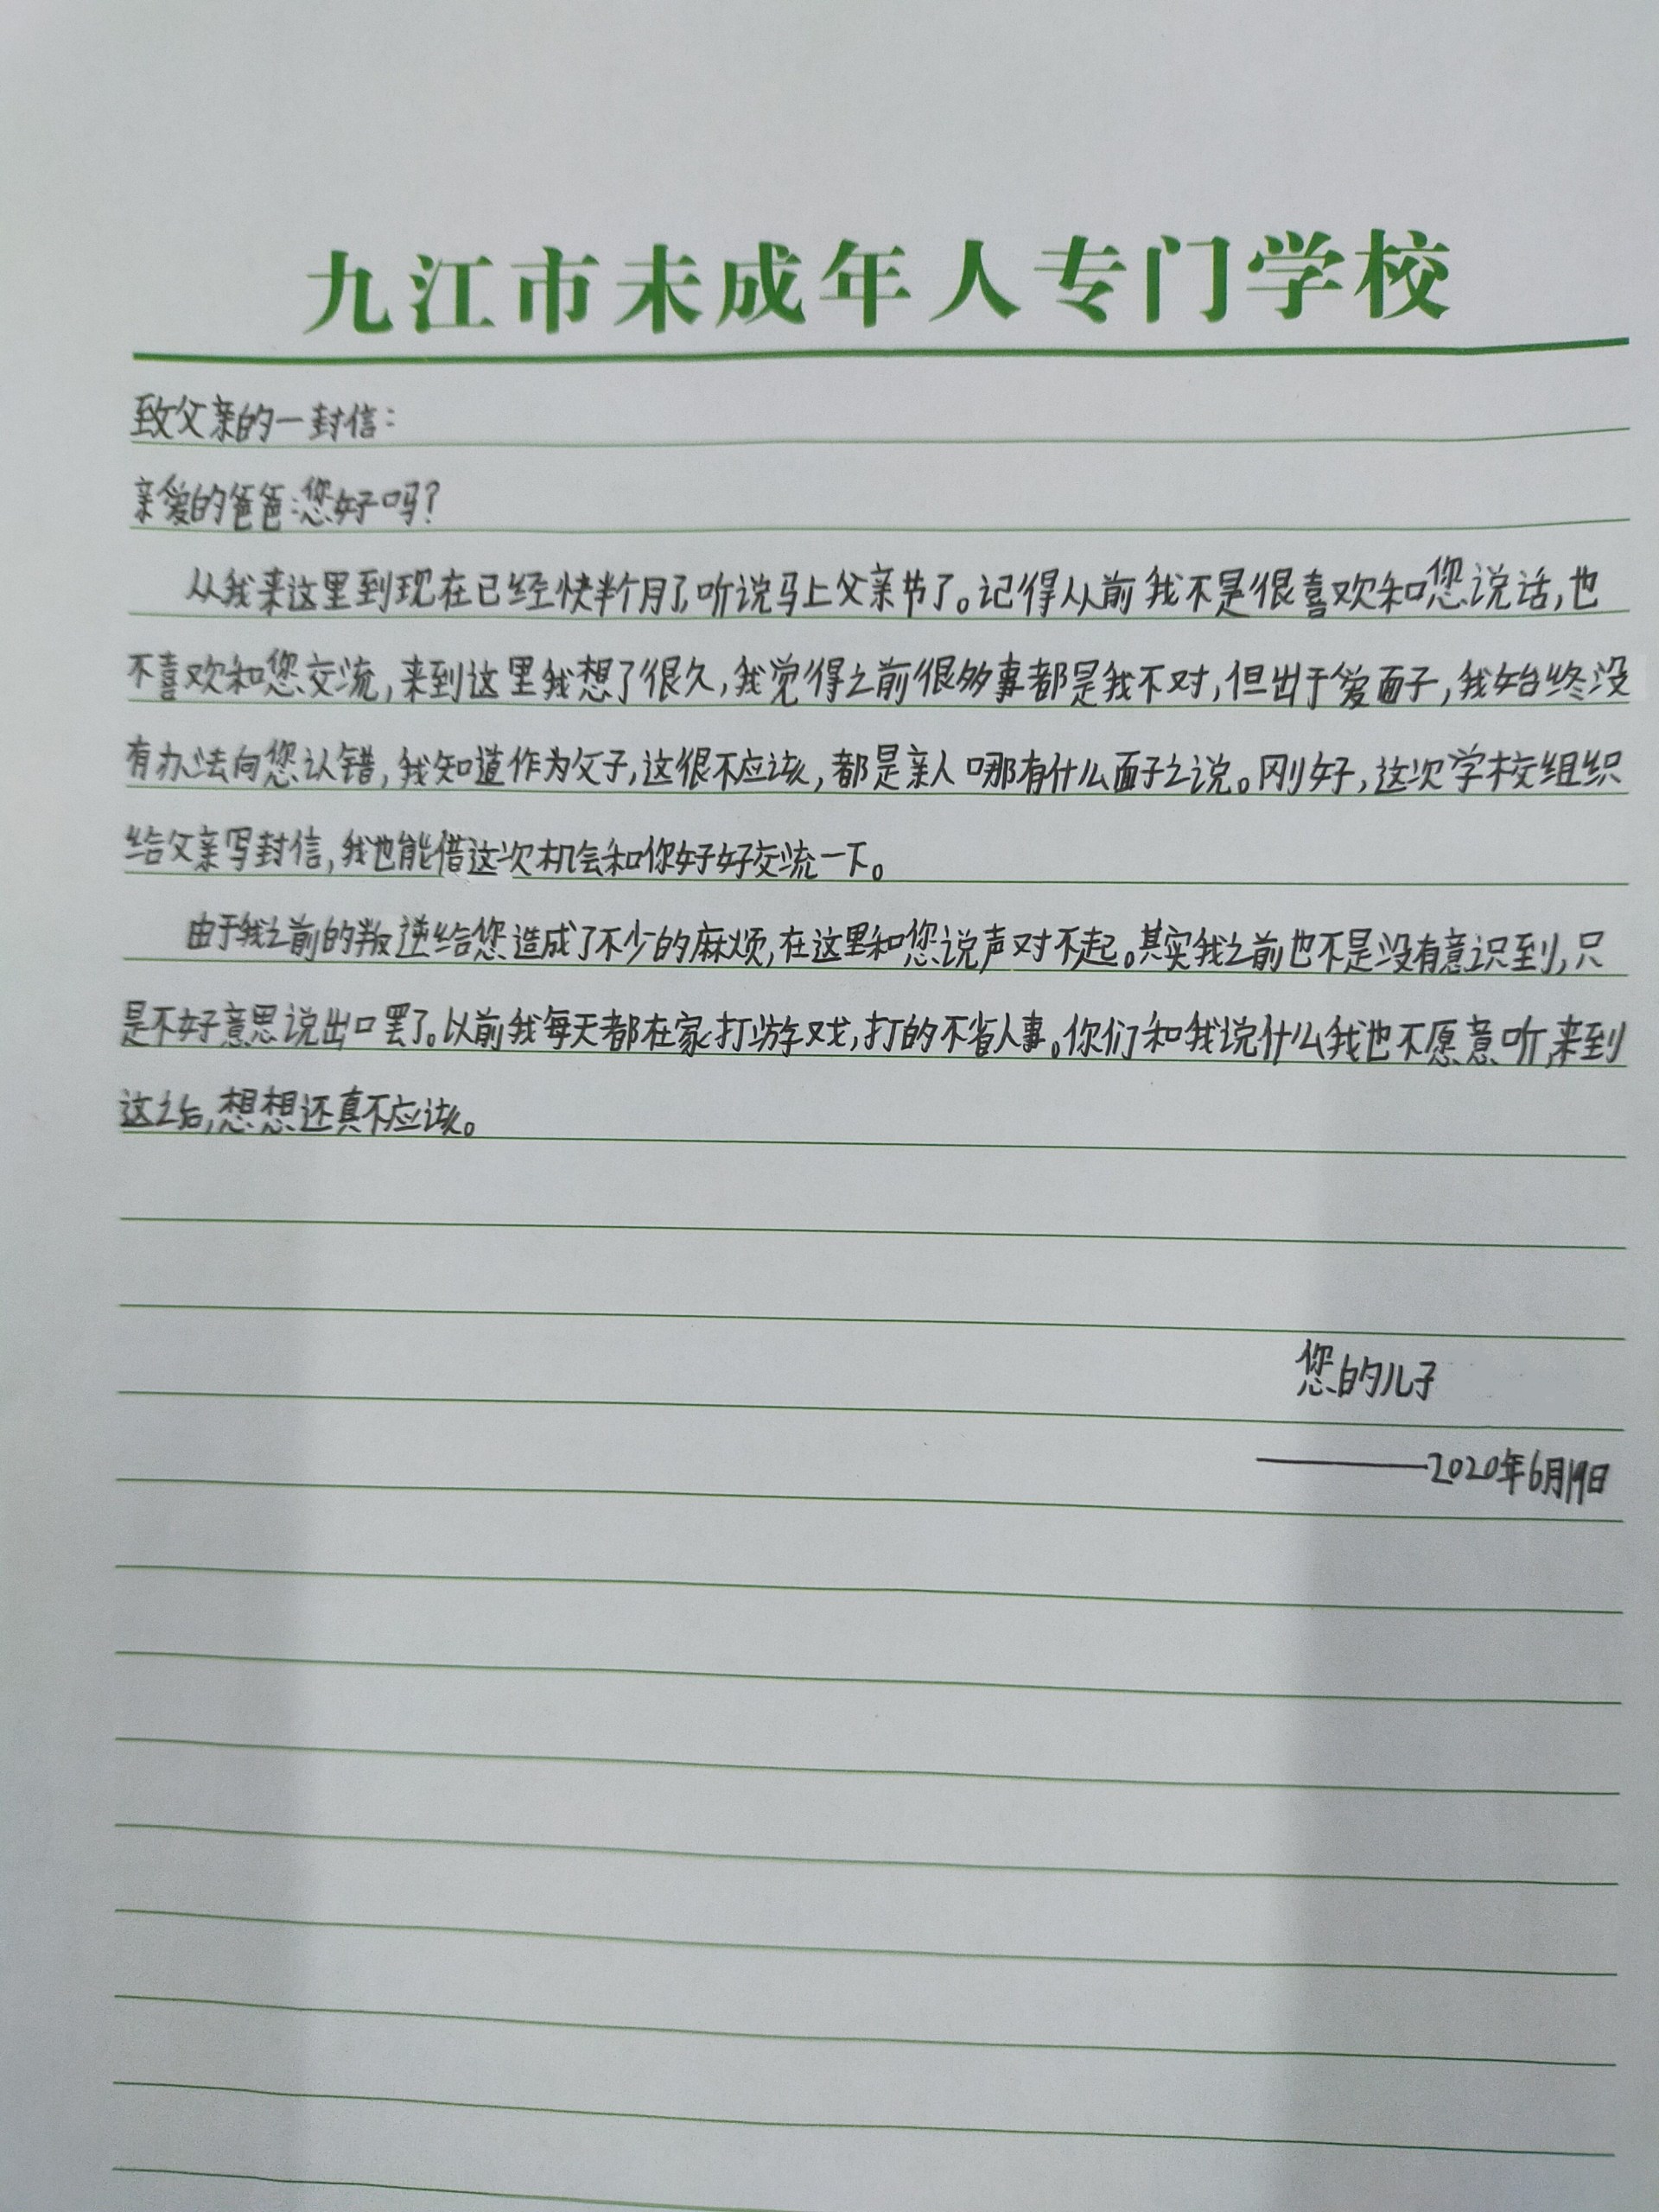 九江市未成年人专门学校
致父亲的一封信:
亲爱的爸爸:您好吗?
从我来这里到现在已经快半个月了,听说马上父亲节了。记得从前我不是很喜欢和您说话,也
不喜欢和您交流,来到这里我想了很久,我觉得之前很多事都是我不对,但出于爱面子,我始终没
有办法向您认错,我知道作为父子,这很不应该,都是亲人哪有什么面子之说。刚好,这次学校组织
给父亲写封信,我也能借这次机会和你好好交流一下。
由于我之前的叛逆给您造成了不少的麻烦,在这里和您说声对不起。其实我之前也不是没有意识到,只
是不好意思说出口罢了。以前我每天都在家打游戏,打的不省人事。你们和我说什么我也不愿意听,来到
这之后,想想还真不应该。
您的儿子
——2020年6月19日